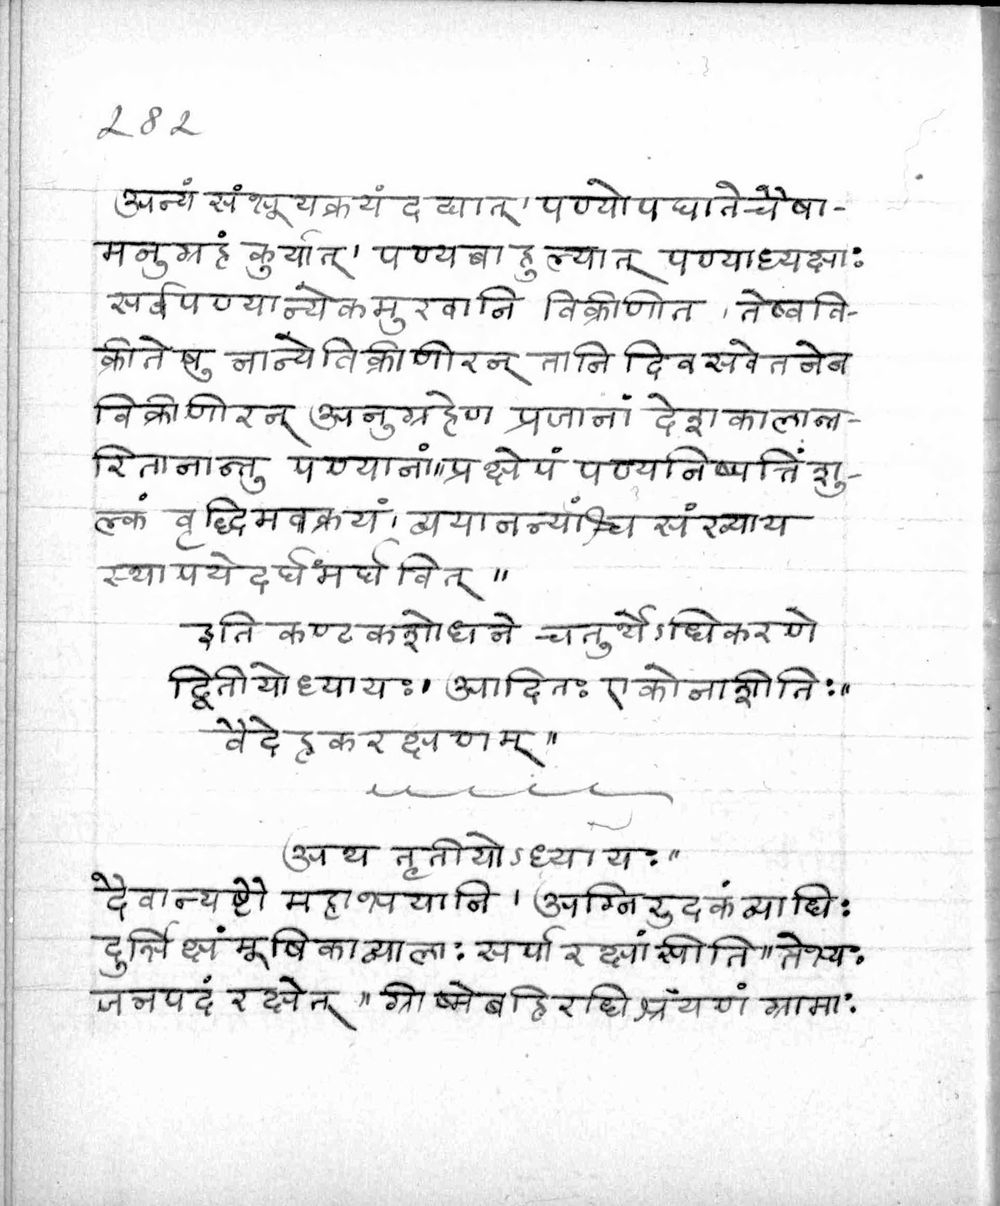 282
अन्यं संभूयक्रयं दद्यात्। पण्योपघातेचैषा-
मनुग्रहं कुर्यात्। पण्यबाहुल्यात् पण्याध्यक्षाः
सर्वपण्यान्येकमुखानि विक्रीणीत । तेष्ववि-
क्रीतेषु नान्येविक्रीणीरन् तानि दिवसवेतनेन
विक्रीणीरन् अनुग्रहेण प्रजानां देशकालान्त-
रितानान्तु पण्यानां॥ प्रक्षेपं पण्यनिष्पत्तिं शु-
ल्कं वृद्धिमवक्रयं। व्ययानन्यांश्च संख्याय
स्थापयेदर्घमर्घवित् ॥
इति कण्टकशोधने चतुर्थेऽधिकरणे
द्वितीयोध्यायः। आदितः एकोनाशीतिः॥
वैदेहकरक्षणम्॥
अथ तृतीयोऽध्यायः॥
दैवान्यष्टौ महाभयानि । अग्निरुदकंव्याधिः
दुर्भिक्षंमूषिकाव्यालाः सर्पारक्षांसीति॥ तेभ्यः
जनपदं रक्षेत् ॥ ग्रीष्मेबहिरधिश्रयणं ग्रामाः